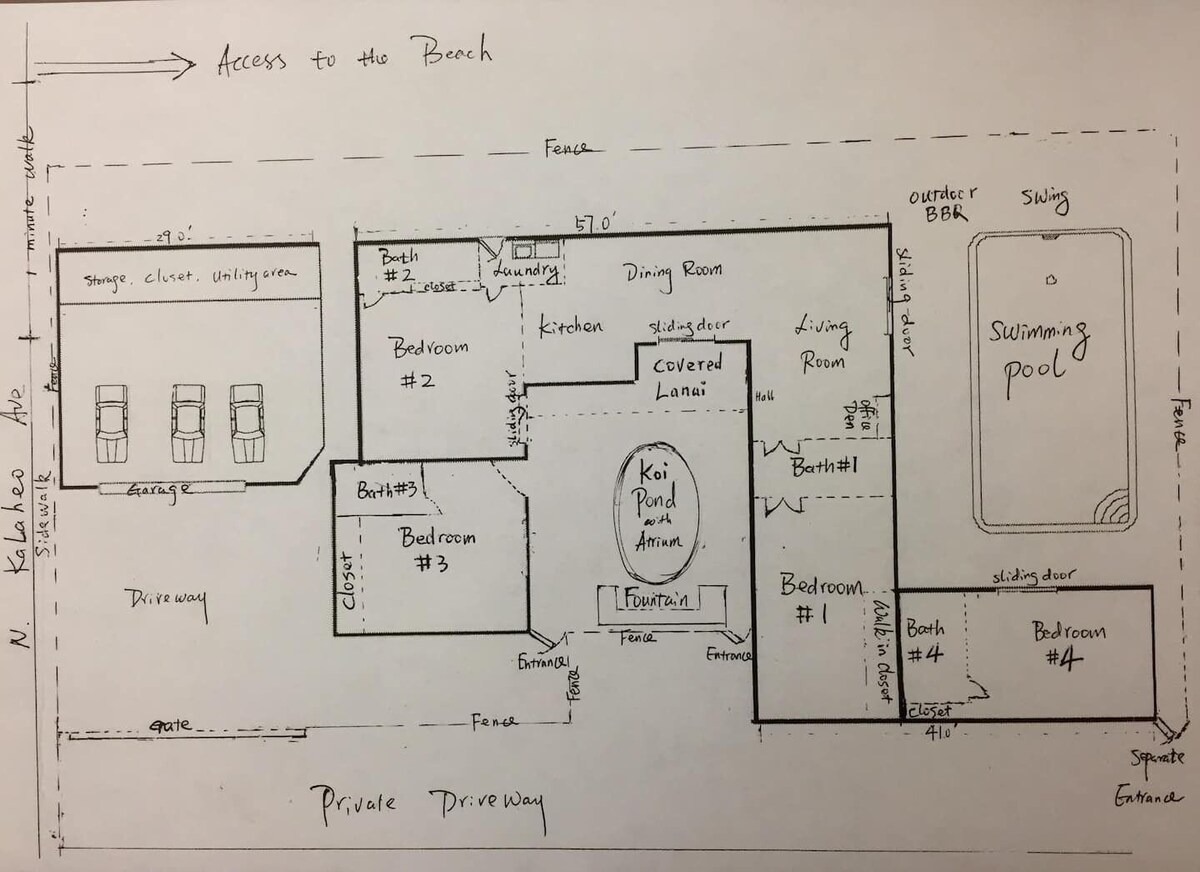 Access to the Beach
1 minute walk
Fence
outdoor
BBQ
Swing
29.0'
57.0'
Storage, closet, utility area
Bath
#2
closet
Laundry
Dining Room
Kitchen
sliding door
Living
Room
sliding door
Swimming
pool
Bedroom
#2
sliding door
Covered
Lanai
Hall
office
Den
Fence
Fence
N. Kalaheo Ave
Sidewalk
Garage
Bath#3
Bedroom
#3
Closet
Koi
Pond
with
Atrium
Bath#1
Fountain
Bedroom
#1
Walk in closet
sliding door
Bath
#4
Bedroom
#4
closet
41.0'
Driveway
Entrance
Fence
Entrance
Fence
Gate
Fence
Separate
Entrance
Private Driveway